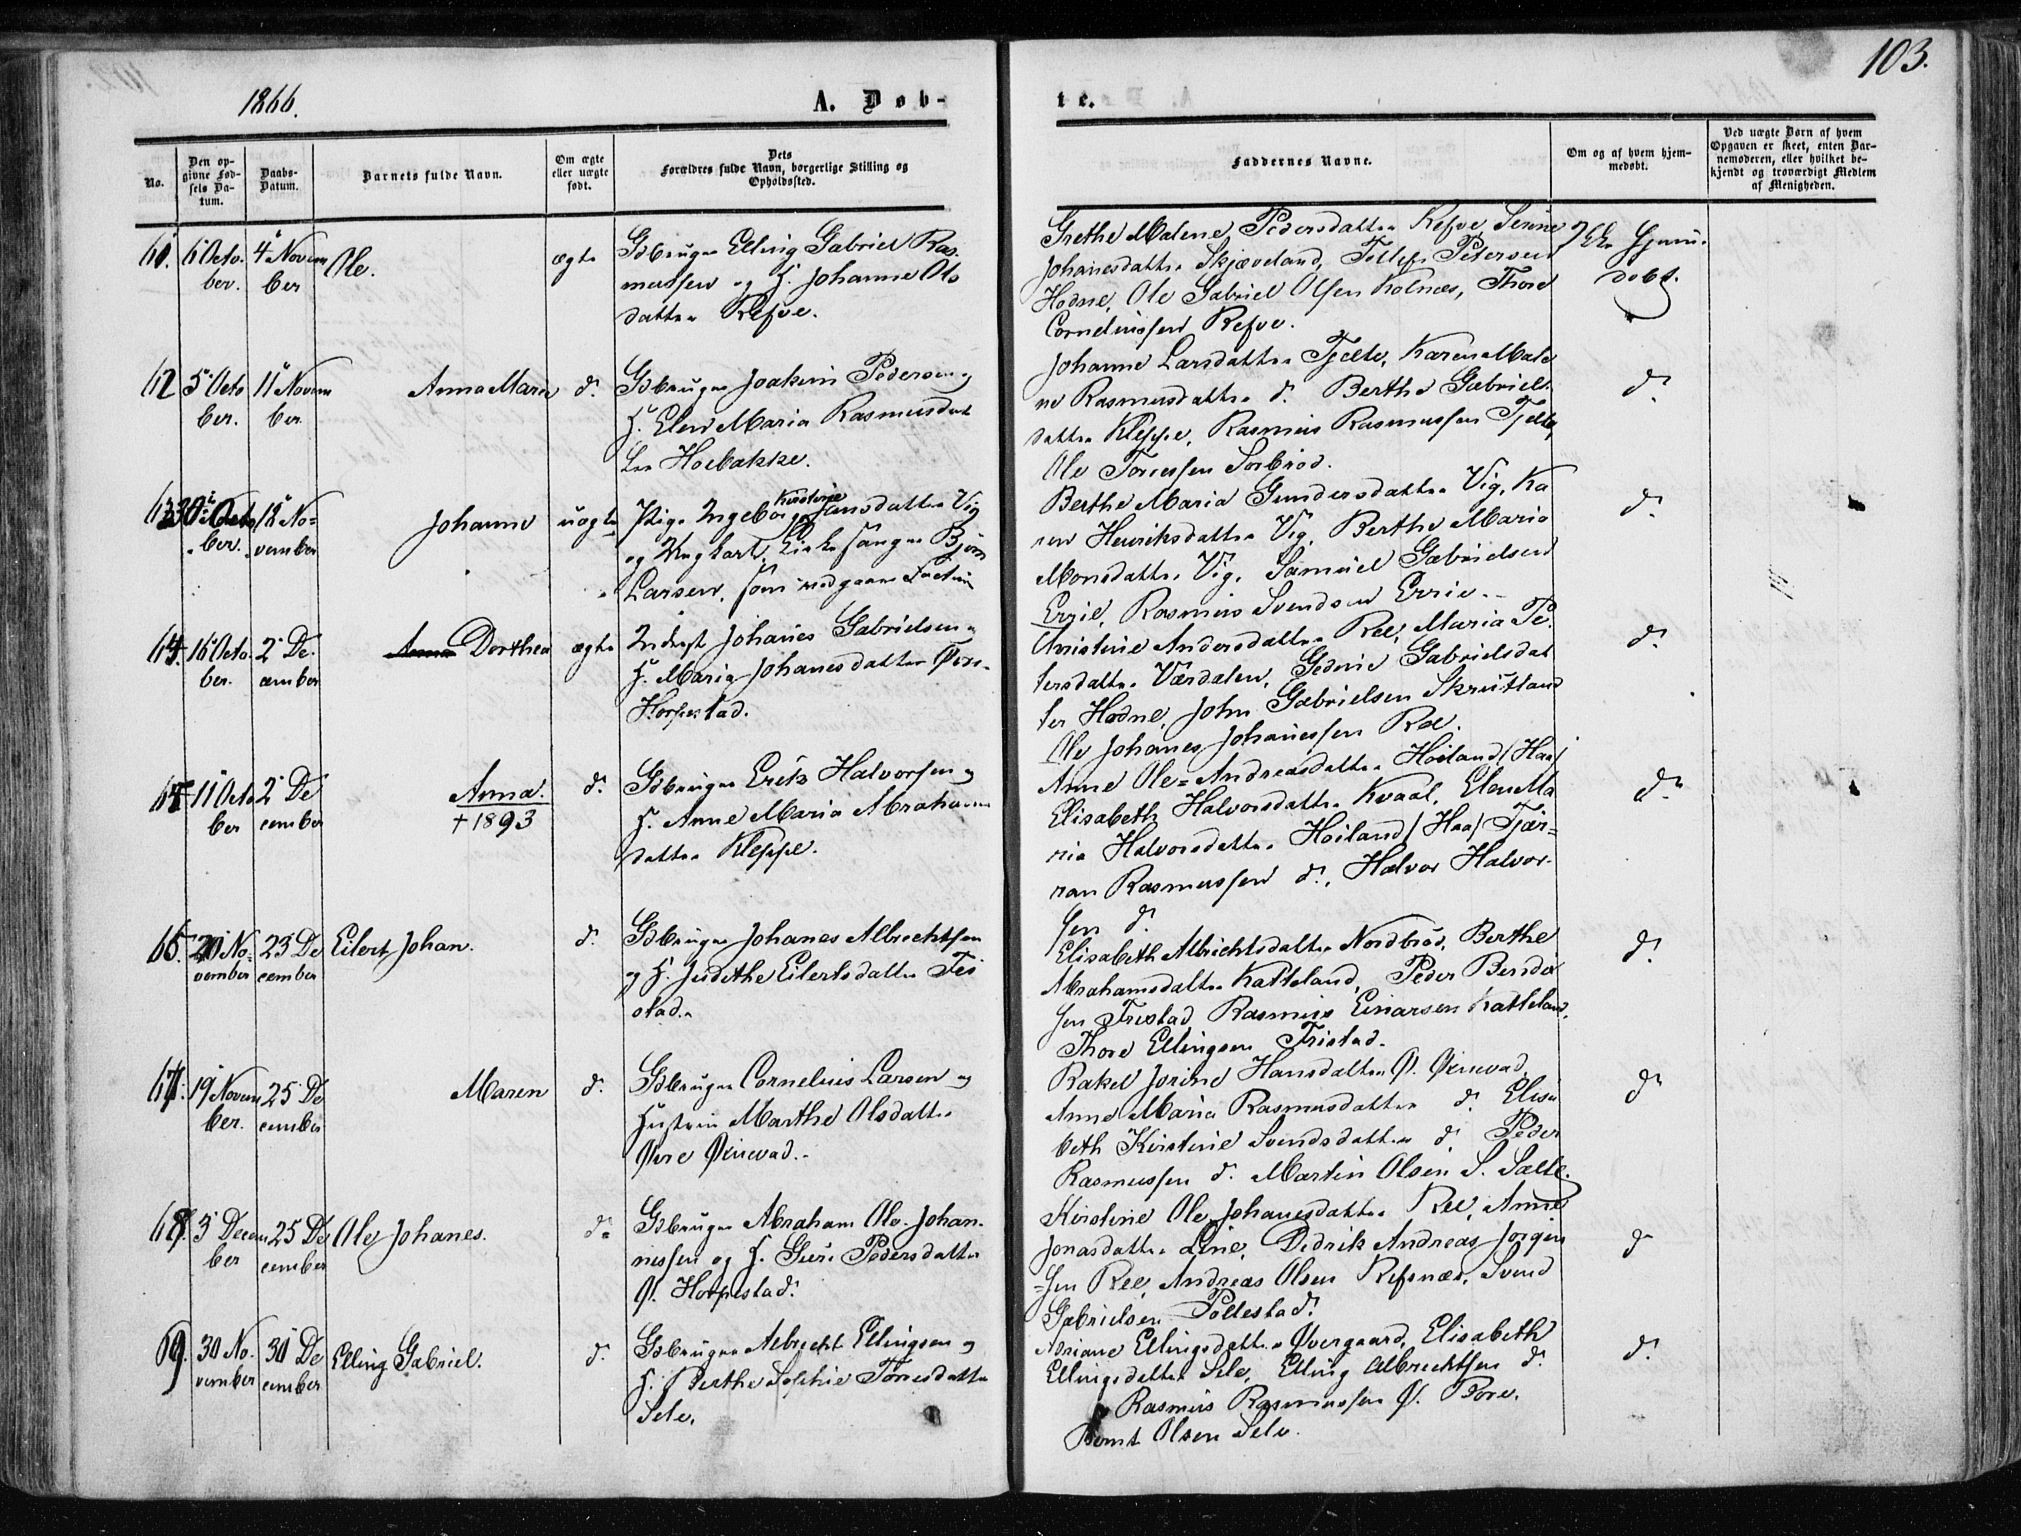 103.
1866.
A. Døb-
te.
No.
Den op-
givne Fød-
sels Da-
tum.
Daabs-
Datum.
Barnets fulde Navn.
Om ægte
eller uægte
født.
Dets
Forældres fulde Navn, borgerlige Stilling og
Opholdssted.
Faddernes Navne.
Om og af hvem hjem-
medøbt.
Ved uægte Børn af hvem
Opgaven er skeet, enten Bar-
nemoderen, eller hvilket be-
kjendt og troværdigt Medlem
af Menigheden.
61. 6 Octo-
ber.
4 Novem
ber
Ole.
ægte
Gbruger Elling Gabriel Ras-
mussen og H. Johanne Ols
datter Refve.
Grethe Malene Pedersdatter Refve, Serine
Johanesdatter Skjæveland, Tollef Petersen
Hodne, Ole Gabriel Olsen Kolnæs, Thore
Corneliussen Refve.
Ikke hjem-
døbt.
62 5 Octo
ber.
11 Novem
ber
Anna Marie
d.
Gbruger Joakim Pedersen og
H. Elen Maria Rasmusdat
ter Hoebakke.
Johanne Larsdatter Tjelte, Karen Male
ne Rasmusdatter d. Berthe Gabriels
datter Kleppe, Rasmus Rasmussen Tjelte,
Ole Tørresen Sørbrød.
d.
63 30 Octo
ber.
18 No-
vember
Johanne
uægte
Pige Ingeborg Kirstine Jansdatter Vig
og Ungkarl, Kirkesanger Bjørn
Larsen, som vedgaar Factum
Berthe Maria Gundersdatter Vig, Ka
ren Henriksdatter Vig, Berthe Maria
Monsdatter Vig, Samuel Gabrielsen
Erzie, Rasmus Svendsen Erzie.
d.
64. 16 Octo-
ber.
2 De-
cember
Anna Dorthea
ægte
Inderst Johanes Gabrielsen og
H. Maria Johanesdatter Øvre
Horpestad.
Christine Andersdatter Ree, Maria Pe-
tersdatter Værdalen, Gedine Gabrielsdat
ter Hodne, John Gabrielsen Skrutland
Ole Johanes Johanessen Ree.
d.
65 11 Octo
ber
2 De
cember
Anna.
+ 1893
d.
Gbruger Erik Halvorsen og
H. Anne Maria Abrahams
datter Kleppe.
Anne Ole-Andreasdatter Høiland/Haa/
Elisabeth Halvorsdatter Kvaal, Elen Ma
ria Halvorsdatter Høiland/Haa/ Tjær-
ran Rasmussen d., Halvor Halvor-
sen d.
d.
66. 20 No-
vember
23 De
cember
Eilert Johan.
d.
Gbruger Johanes Albrechtsen
og H. Judithe Eilertsdatter Tri
stad.
Elisabeth Albrichtsdatter Nordbrød, Berthe
Abrahamsdatter Katteland, Peder Berndt
sen Tristad Rasmus Einarsen Katteland,
Thore Ellingsen Tristad.
d.
67. 19 Novem
ber.
25 De
cember
Maren
d.
Gbruger Cornelius Larsen og
Hustru Marthe Olsdatter
Øvre Øxnevad.
Rakel Jorine Hansdatter Ø. Øxnevad,
Anne Maria Rasmusdatter d. Elisa
beth Kirstine Svendsdatter d. Peder
Rasmussen d. Martin Olsen S. Sælte.
d.
68. 3 Decem
ber
25 De
cember
Ole Johanes.
d.
Gbruger Abraham Ole-Johan-
nessen og H. Guri Pedersdatter
Ø. Horpestad.
Kirstine Ole Johanesdatter Ree, Anne
Jonasdatter Line, Didrik Andreas Jørgen
sen Ree, Andreas Olsen Refsnæs, Svend
Gabrielsen Pollestad.
d.
69. 30 No-
vember
30 De
cember
Elling Gabriel.
d.
Gbruger Albrecht Ellingsen og
H. Berthe Sophie Tønesdatter
Sele.
Adriane Ellingsdatter Øvergaard, Elisabeth
Ellingsdatter Sele, Elling Albrechtsen d.
Rasmus Rasmussen Ø. Pore,
Bernt Olsen Sele.
d.